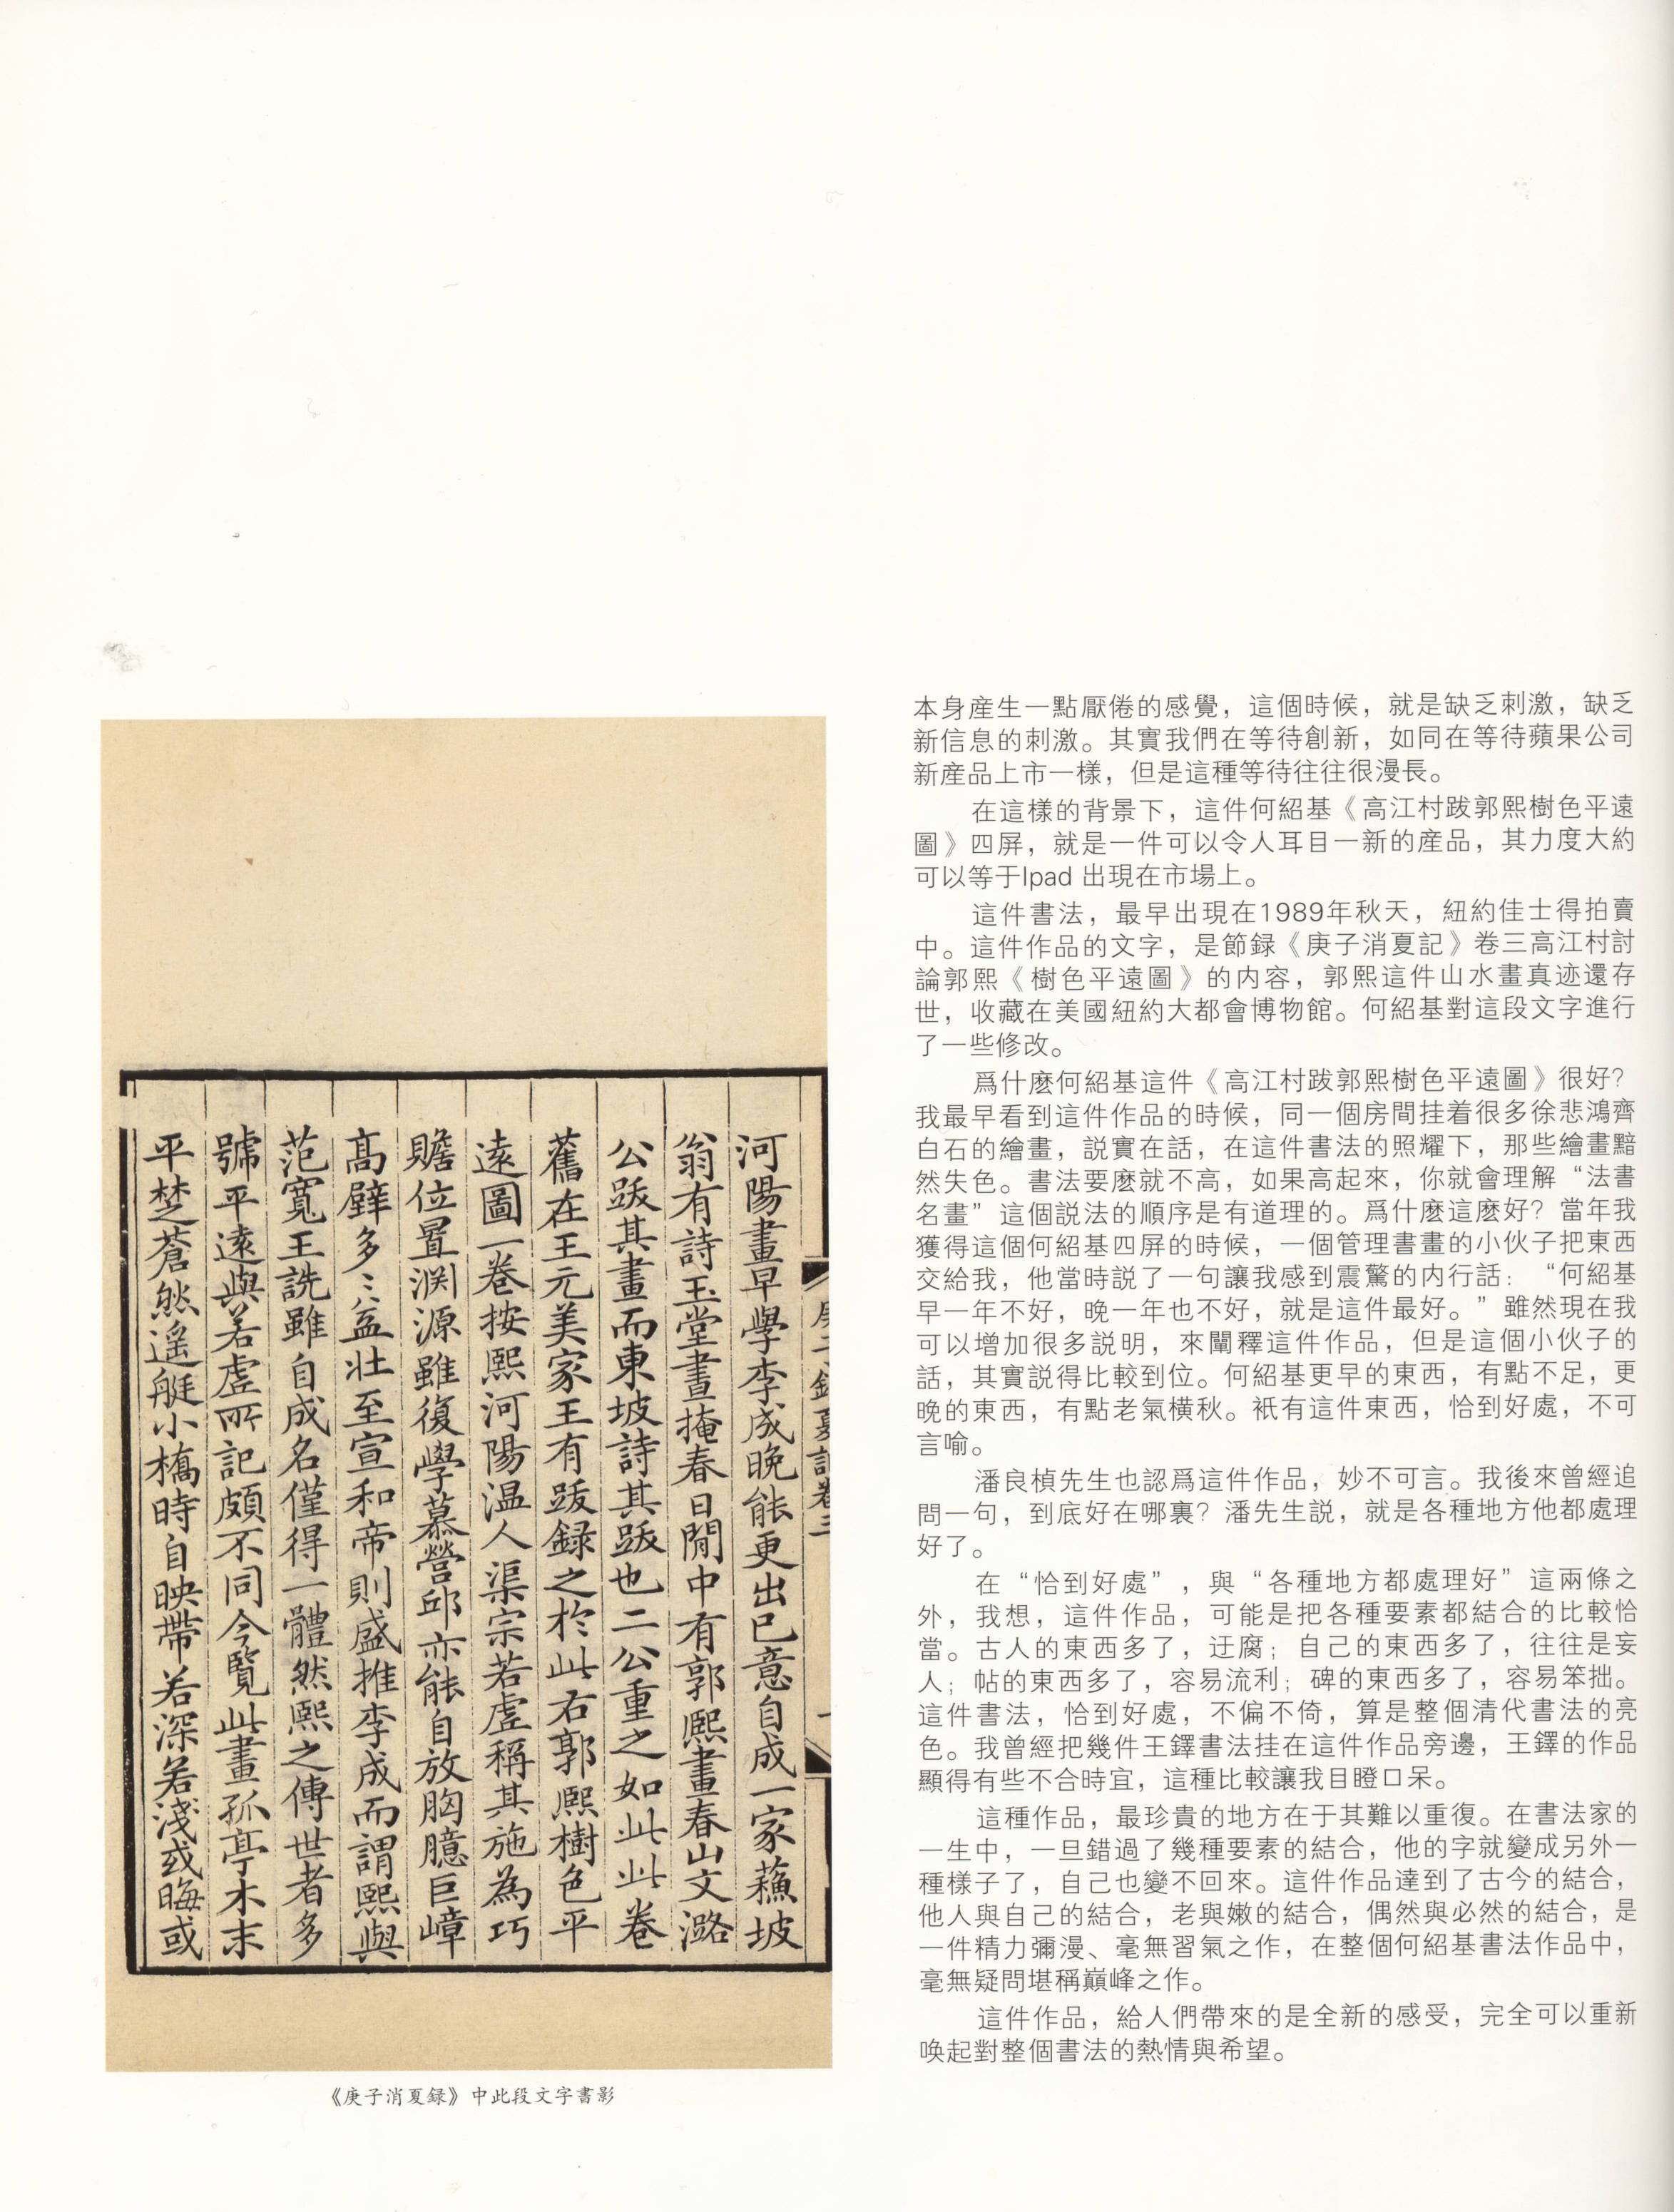 河陽畫早學李成晚能更出已意自成一家蘓坡
翁有詩玉堂晝掩春日閒中有郭熙畫春山文潞
公跋其畫而東坡詩其跋也二公重之如此此卷
舊在王元美家王有跋録之於此右郭熙樹色平
遠圖一卷按熙河陽温人渠宗若虚稱其施為巧
贍位置渊源雖復學慕營邱亦能自放胸臆巨嶂
高壁多〻益壯至宣和帝則盛推李成而謂熙與
范寬王詵雖自成名僅得一體然熙之傳世者多
號平遠與若虚所記頗不同今覽此畫孤亭木末
平楚蒼然遥艇小橋時自映帶若深若淺或晦或
《庚子消夏録》中此段文字書影
本身産生一點厭倦的感覺，這個時候，就是缺乏刺激，缺乏
新信息的刺激。其實我們在等待創新，如同在等待蘋果公司
新産品上市一樣，但是這種等待往往很漫長。
在這樣的背景下，這件何紹基《高江村跋郭熙樹色平遠
圖》四屏，就是一件可以令人耳目一新的産品，其力度大約
可以等于Ipad 出現在市場上。
這件書法，最早出現在1989年秋天，紐約佳士得拍賣
中。這件作品的文字，是節録《庚子消夏記》卷三高江村討
論郭熙《樹色平遠圖》的内容，郭熙這件山水畫真迹還存
世，收藏在美國紐約大都會博物館。何紹基對這段文字進行
了一些修改。
爲什麽何紹基這件《高江村跋郭熙樹色平遠圖》很好？
我最早看到這件作品的時候，同一個房間挂着很多徐悲鴻齊
白石的繪畫，説實在話，在這件書法的照耀下，那些繪畫黯
然失色。書法要麽就不高，如果高起來，你就會理解“法書
名畫”這個説法的順序是有道理的。爲什麽這麽好？當年我
獲得這個何紹基四屏的時候，一個管理書畫的小伙子把東西
交給我，他當時説了一句讓我感到震驚的内行話：“何紹基
早一年不好，晚一年也不好，就是這件最好。”雖然現在我
可以增加很多説明，來闡釋這件作品，但是這個小伙子的
話，其實説得比較到位。何紹基更早的東西，有點不足，更
晚的東西，有點老氣横秋。衹有這件東西，恰到好處，不可
言喻。
潘良楨先生也認爲這件作品，妙不可言。我後來曾經追
問一句，到底好在哪裏？潘先生説，就是各種地方他都處理
好了。
在“恰到好處”，與“各種地方都處理好”這兩條之
外，我想，這件作品，可能是把各種要素都結合的比較恰
當。古人的東西多了，迂腐；自己的東西多了，往往是妄
人；帖的東西多了，容易流利；碑的東西多了，容易笨拙。
這件書法，恰到好處，不偏不倚，算是整個清代書法的亮
色。我曾經把幾件王鐸書法挂在這件作品旁邊，王鐸的作品
顯得有些不合時宜，這種比較讓我目瞪口呆。
這種作品，最珍貴的地方在于其難以重復。在書法家的
一生中，一旦錯過了幾種要素的結合，他的字就變成另外一
種樣子了，自己也變不回來。這件作品達到了古今的結合，
他人與自己的結合，老與嫩的結合，偶然與必然的結合，是
一件精力彌漫、毫無習氣之作，在整個何紹基書法作品中，
毫無疑問堪稱巔峰之作。
這件作品，給人們帶來的是全新的感受，完全可以重新
唤起對整個書法的熱情與希望。